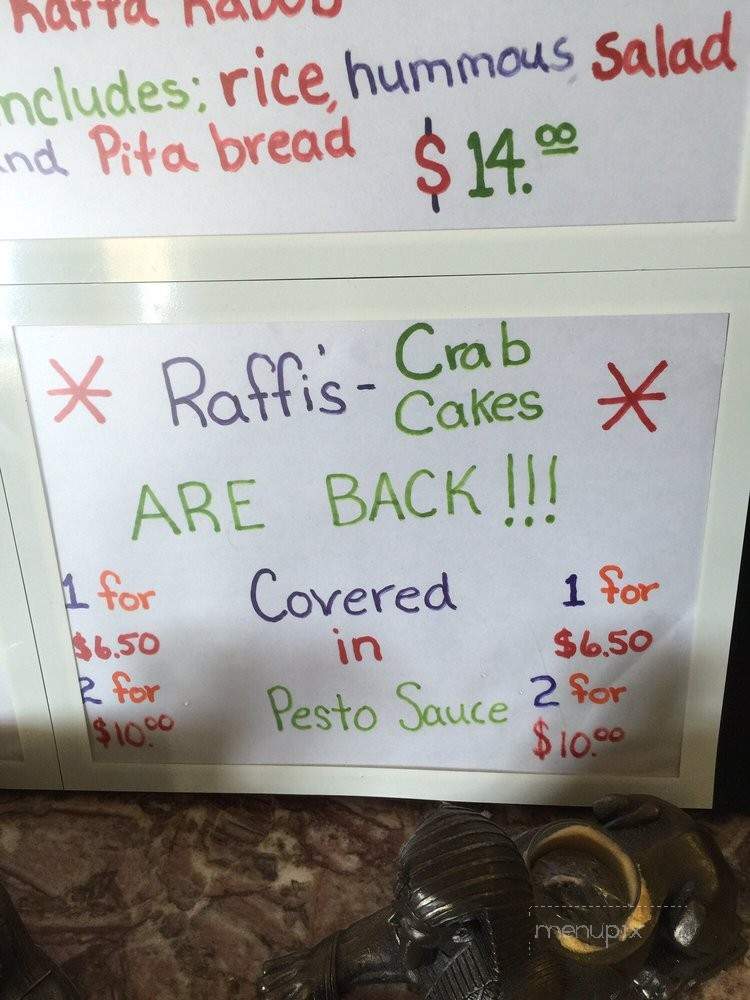 Kafta Kabob
ncludes: rice, hummous, Salad
nd Pita bread $14.00
* Raffi's - Crab Cakes *
ARE BACK!!!
1 for $6.50
2 for $10.00
Covered
in
Pesto Sauce
1 for $6.50
2 for $10.00
menupix